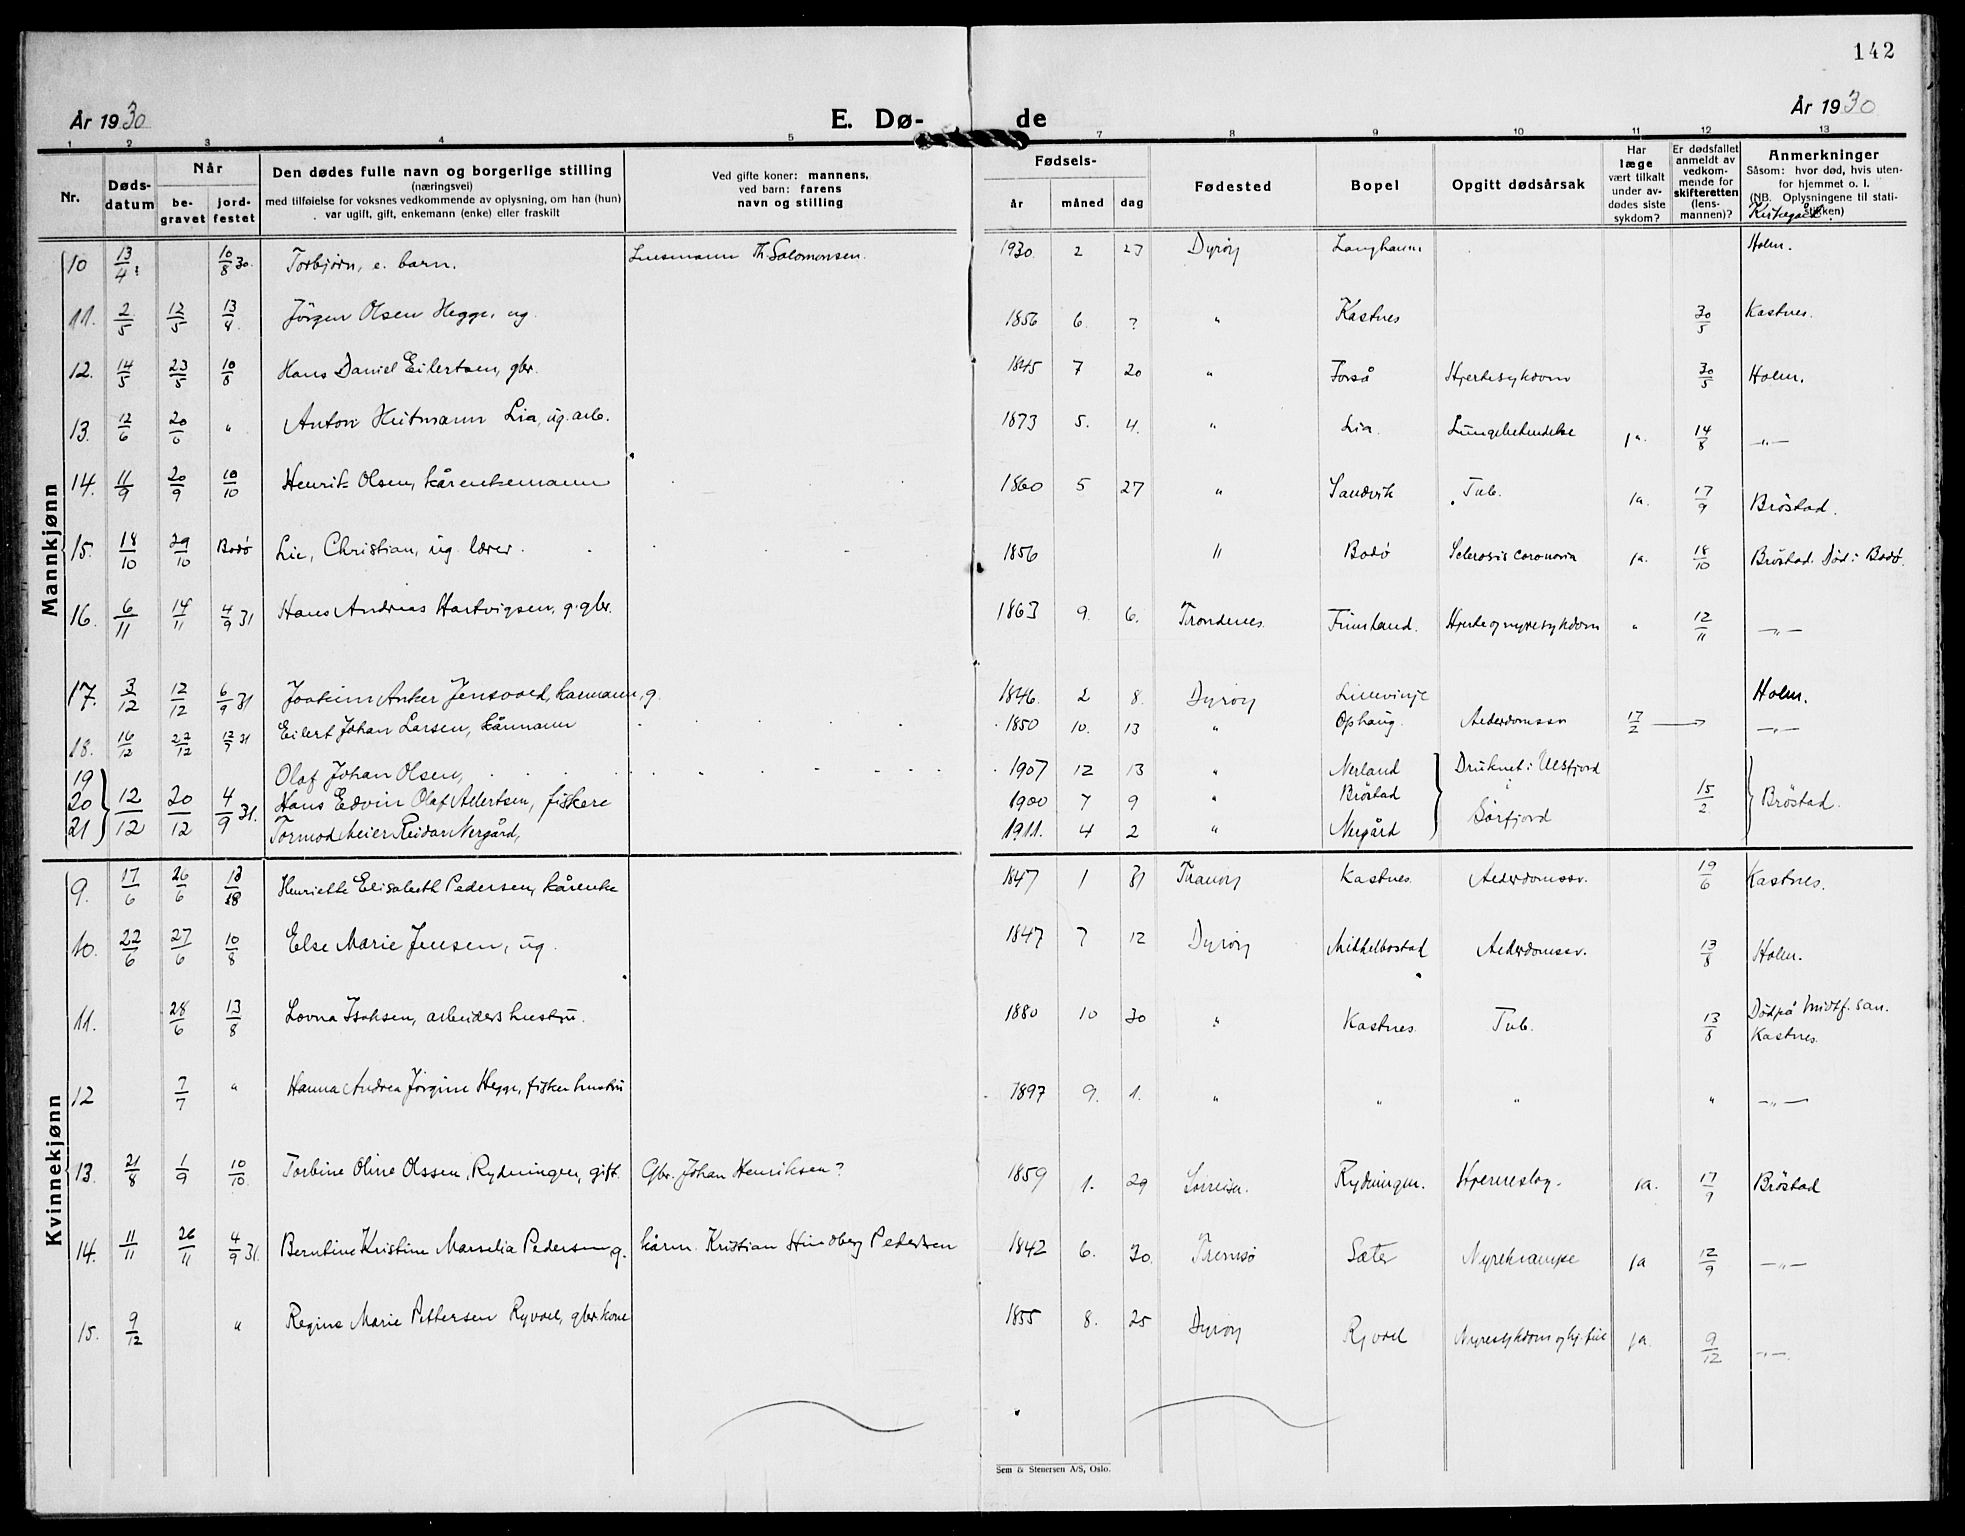 142
År 1930 E. Dø- de År 1930
1 2 3 4 5 7 8 9 10 11 12 13
Nr.
Døds-
datum
Når
be-
gravet
jord-
festet
Den dødes fulle navn og borgerlige stilling
(næringsvei)
med tilføielse for voksnes vedkommende av oplysning, om han (hun)
var ugift, gift, enkemann (enke) eller fraskilt
Ved gifte koner: mannens,
ved barn: farens
navn og stilling
Fødsels-
år måned dag
Fødested
Bopel
Opgitt dødsårsak
Har
læge
vært tilkalt
under av-
dødes siste
sykdom?
Er dødsfallet
anmeldt av
vedkom-
mende for
skifteretten
(lens-
mannen)?
Anmerkninger
Såsom: hvor død, hvis uten-
for hjemmet o. l.
(NB. Oplysningene til stati-
stikken)
Kirkegård.
Mannkjønn
10 13/4 10/8 30. Torbjørn, e. barn. Th. Salomonsen. 1930. 2 27 Dyrøy Langhamn Holm.
11. 2/5 12/5 13/8 Jörgen Olsen Hegge, ug. 1856 6. ? " Kastnes 30/5 Kastnes.
12. 14/5 23/5 10/8 Hans Daniel Eilertsen, gbr. 1845 7 20 " Forså Hjertesykdom 30/5 Holm.
13. 12/6 20/6 " Anton Heitmann Lia, ug. arb. 1873 5. 4. " Lia. Lungebetendelse ja. 14/8 —"—
14. 11/9 20/9 10/10 Henrik Olsen, kårenkemann 1860 5 27 " Sandvik Tub. ja. 17/9 Bröstad.
15. 18/10 29/10 Bodø Lie, Christian, ug. lærer. 1856 " Bodø Sclerosis coronaria ja. 18/10 Bröstad. Död i Bodø.
16. 6/11 14/11 4/9 31 Hans Andreas Hartvigsen, g. gbr. 1863 9. 6. Trondenes. Finnland. Hjerte og nyresykdom " 12/11 —"—
17. 3/12 12/12 6/9 31 Joakim Anker Jensvoed, kaarmann, g. 1846. 2 8. Dyrøy Lillevinje Holm.
18. 16/12 22/12 Eilert Johan Larsen, kårmann 1850 10. 13 " Ophaug. Alderdomssv 17/2 —"—
19 Olaf Johan Olsen, 1907 12 13 " Nerland Druknet i Ulsfjord
20 12/12 20/12 4/9 31. Hans Edvin Olaf Albertsen, fiskere 1900 7 9 " Bröstad 15/2 Bröstad.
21 Tormod Meier Reidar Nergård, 1911. 4 2 " Nergård Sørfjord
Kvinnekjønn
9. 17/6 26/6 Henriette Elisabeth Pedersen, kårenke 1847 1 31 Tranøy Kastnes. Alderdomssv. 19/6 Kastnes.
10. 22/6 27/6 10/8 Else Marie Jensen, ug. 1847 7 12 Dyrøy Mikkelbostad Alderdomssv. 13/8 Holm.
11. 28/6 13/8 Lovna Isaksen, arbeiders hustru. 1880 10 30 " Kastnes. Tub. 13/8 Död på Midtf. san.
Kastnes.
12 7/7 " Hanna Andrea Jörgine Hegge, fisker hustru 1897 9. 1. " " " " —"—
13. 21/8 1/9 10/10. Torbine Oline Olssen, Rydningen, gift. Gbr. Johan Henriksen? 1859 1. 29 Sørreisa. Rydningen. Hjerneslag. ja. 17/9 Bröstad
14. 11/11 26/11 4/9 31. Berntine Kristine Marselia Pedersen g. kårm. Kristian Hindberg Pedersen 1842 6. 30. Tromsø Sæter Nyrekrampe ja 12/9 —"—
15. 9/12 " Regine Marie Pettersen Ryvoel, gbr. kone 1855 8. 25 Dyrøy Ryvoel Nyresykdom og hj. feil ja. 9/12 —"—
Sem & Stenersen A/S, Oslo.